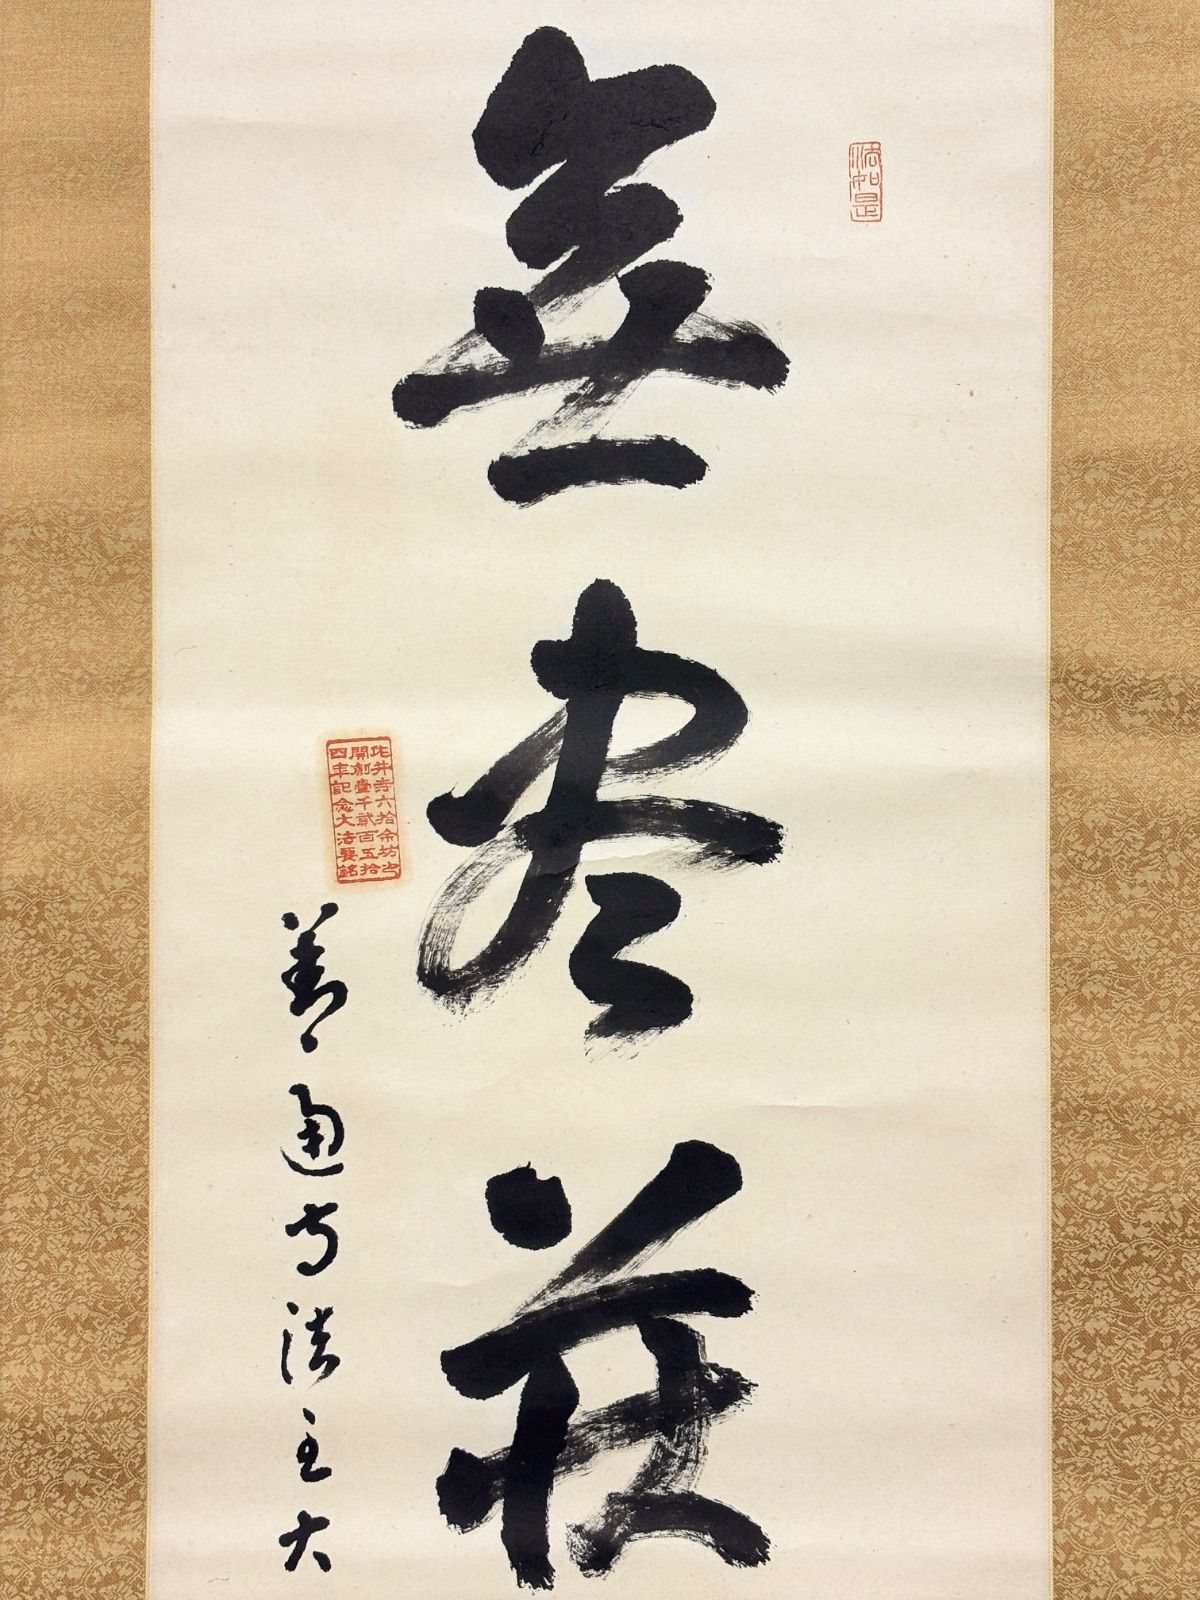 法如是
無尽蔵
井寺六拾余坊之
開創壹千貳百五拾
四年記念大法要銘
善通寺法主大